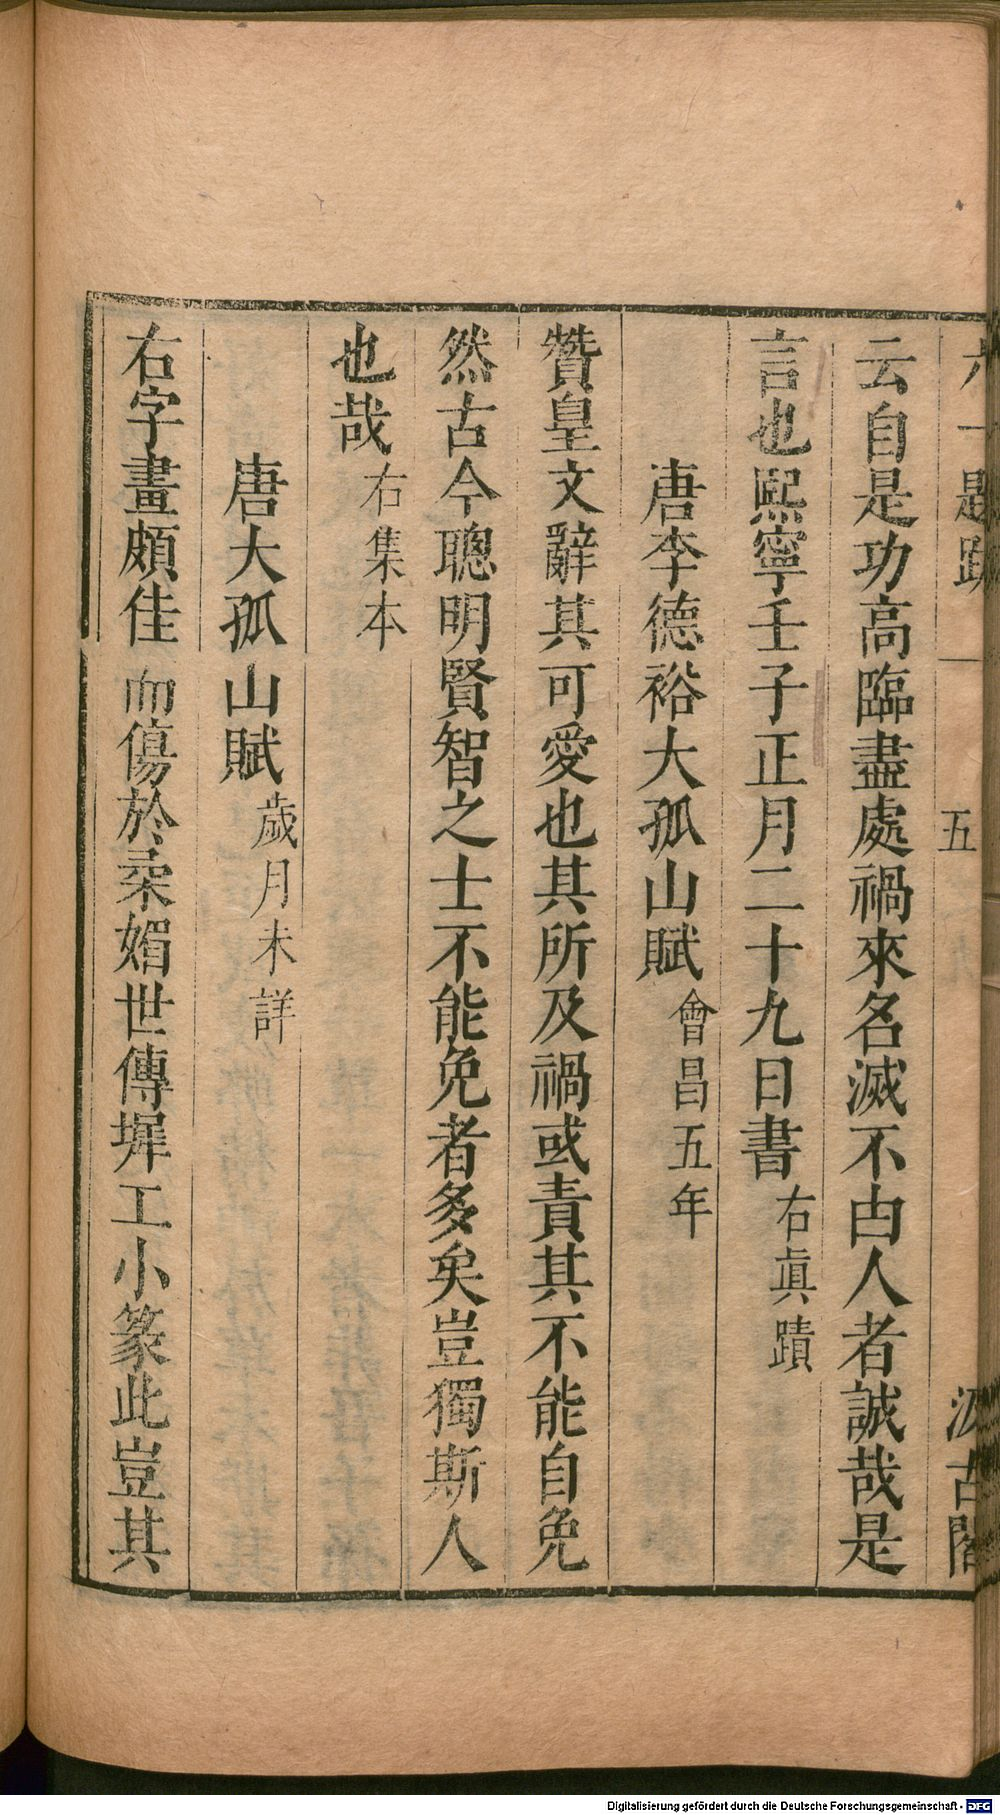 六一題跋 五 汲古閣
云自是功高臨盡處禍來名滅不由人者誠哉是
言也熙寧壬子正月二十九日書右眞蹟
唐李德裕大孤山賦會昌五年
贊皇文辭其可愛也其所及禍或責其不能自免
然古今聰明賢智之士不能免者多矣豈獨斯人
也哉右集本
唐大孤山賦歲月未詳
右字畫頗佳而傷於柔媚世傳墀工小篆此豈其
Digitalisierung gefördert durch die Deutsche Forschungsgemeinschaft - DFG